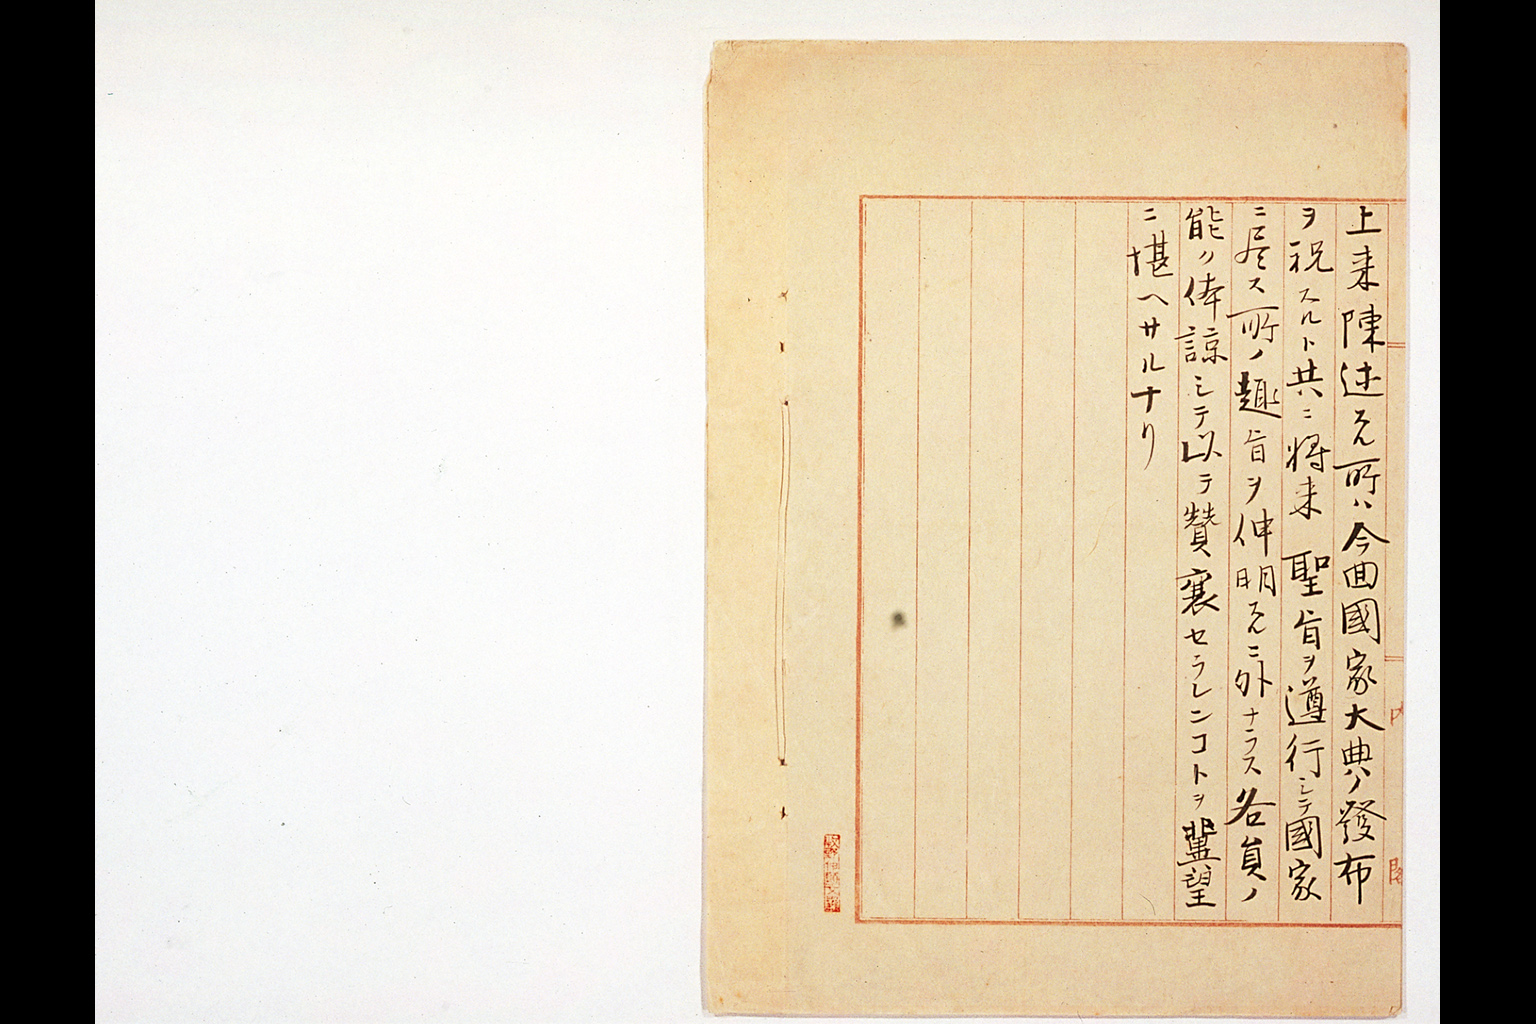 上来陳述スル所ハ今回國家大典ノ發布
ヲ祝スルト共ニ将来　聖旨ヲ遵行シテ國家
ニ尽ス所ノ趣旨ヲ伸明スルニ外ナラス各員ノ
能ク体諒シテ以テ賛襄セラレンコトヲ冀望
ニ堪ヘサルナリ
内
閣